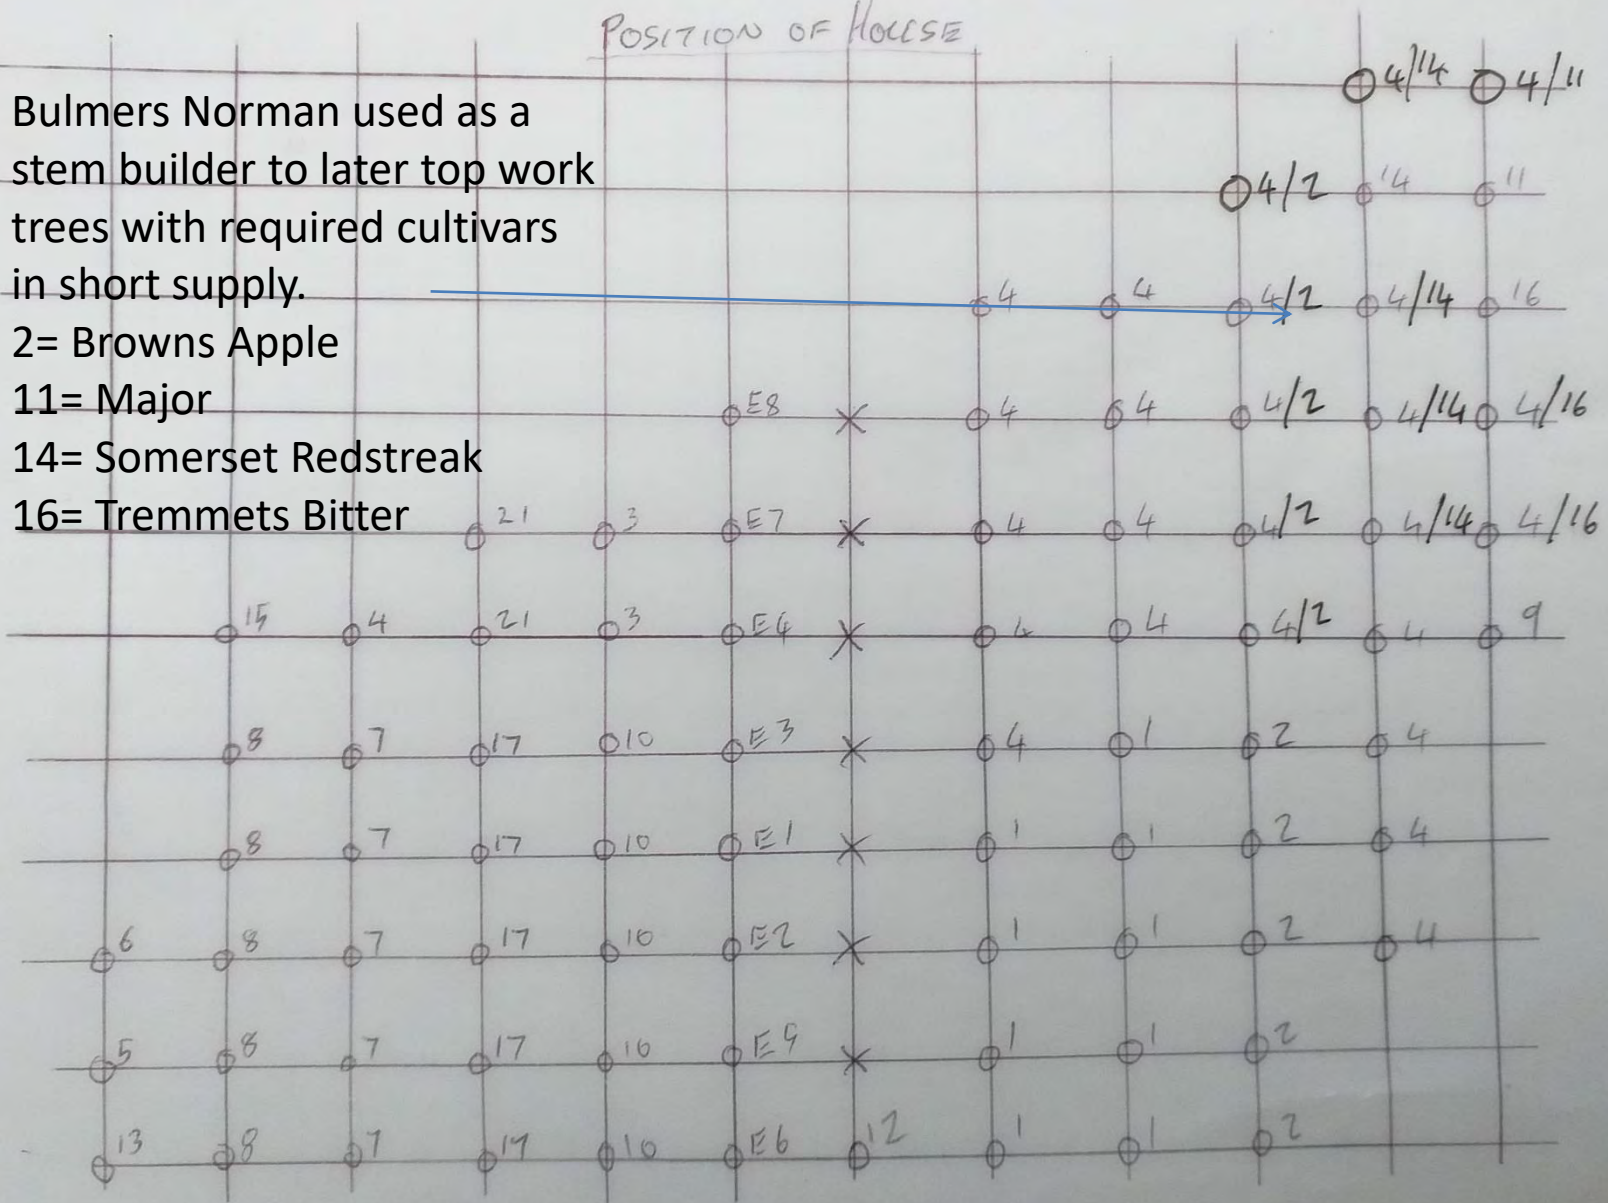 POSITION OF HOUSE
Bulmers Norman used as a
stem builder to later top work
trees with required cultivars
in short supply.
2= Browns Apple
11= Major
14= Somerset Redstreak
16= Tremmets Bitter
4/14 4/11
4/2 14 11
4 4 4/2 4/14 16
E8 4 4 4/2 4/14 4/16
21 3 E7 4 4 4/2 4/14 4/16
15 4 21 3 E4 4 4 4/2 4 9
8 7 17 10 E3 4 1 2 4
8 7 17 10 E1 1 1 2 4
6 8 7 17 10 E2 1 1 2 4
5 8 7 17 10 1 1 2
13 8 7 17 10 E6 12 1 1 2